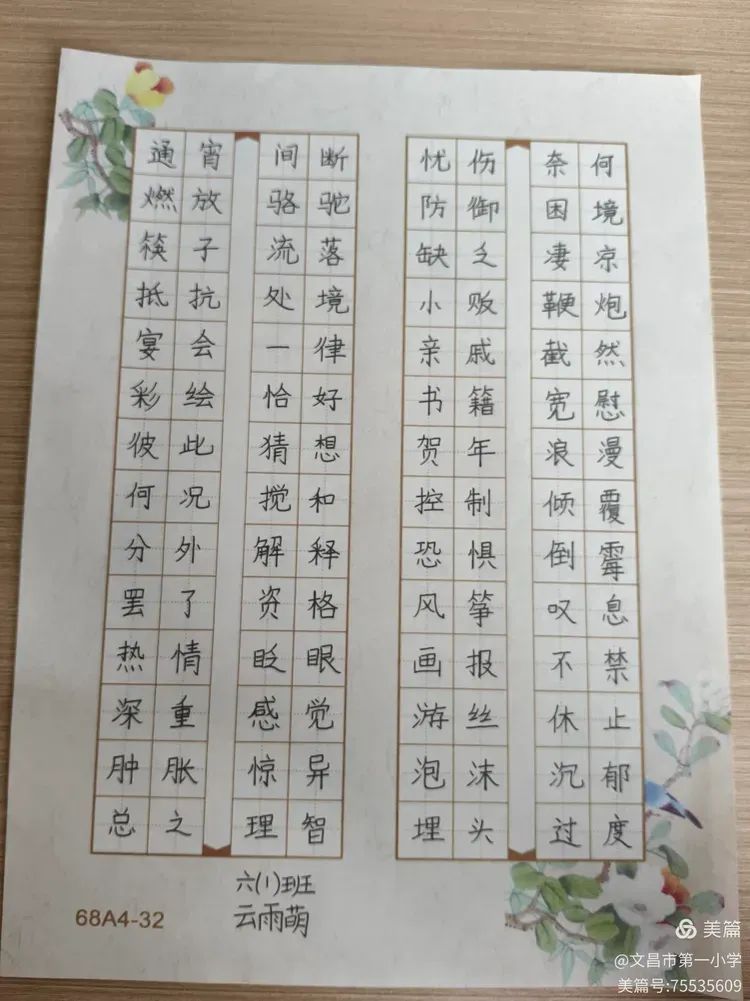 通宵 间断 忧伤 奈何
燃放 骆驼 防御 困境
筷子 流落 缺乏 凄凉
抵抗 处境 小贩 鞭炮
宴会 一律 亲戚 截然
彩绘 恰好 书籍 宽慰
彼此 猜想 贺年 浪漫
何况 搅和 控制 倾覆
分外 解释 恐惧 倒霉
罢了 资格 风筝 叹息
热情 眨眼 画报 不禁
深重 感觉 游丝 休止
肿胀 惊异 泡沫 沉郁
总之 理智 埋头 过度
六(1)班
云雨萌
68A4-32
美篇
@文昌市第一小学
美篇号:75535609